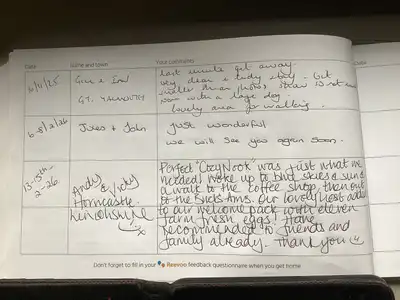 Date
Name and town
Your comments
Date
16/11/25
Gill & Ian
GT. YARMOUTH
Last minute get away.
very clean & tidy stay. but
smaller than photos, straw is not
room with a large dog.
lovely area for walking.
6-8/2/26
Jules & John
Just wonderful
we will see you again soon.
13-15th-
2-26.
Andy
& Vicky
Horncastle
Lincolnshire
x
Perfect "Cozy Nook" was just what we
needed! woke up to blue skies & sun
a walk to the coffee shop, then out
to the Bricks Arms. Our lovely host added
to our welcome pack with eleven
farm fresh eggs! Have
recommended to friends and
family already. Thank you
Don't forget to fill in your Reevoo feedback questionnaire when you get home